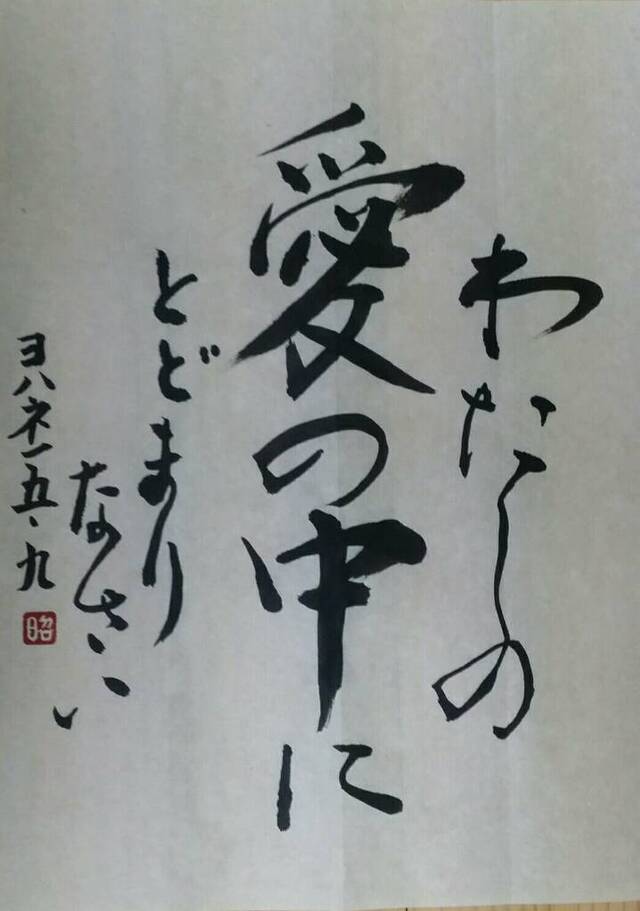 わたしの
愛の中に
とどまり
なさい
ヨハネ一五、九
昭